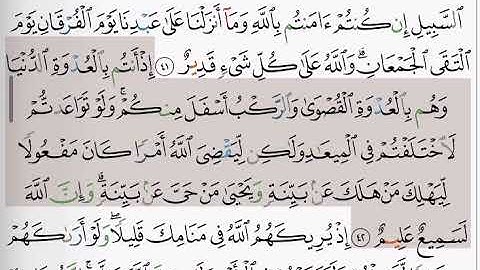 السَّبِيلِ إِن كُنتُمْ ءَامَنتُم بِاللَّهِ وَمَآ أَنزَلْنَا عَلَىٰ عَبْدِنَا يَوْمَ الْفُرْقَانِ يَوْمَ
الْتَقَى الْجَمْعَانِ ۗ وَاللَّهُ عَلَىٰ كُلِّ شَىْءٍ قَدِيرٌ ٤١ إِذْ أَنتُم بِالْعُدْوَةِ الدُّنْيَا
وَهُم بِالْعُدْوَةِ الْقُصْوَىٰ وَالرَّكْبُ أَسْفَلَ مِنكُمْ ۚ وَلَوْ تَوَاعَدتُّمْ
لَاخْتَلَفْتُمْ فِى الْمِيعَـٰدِ وَلَـٰكِن لِّيَقْضِىَ اللَّهُ أَمْرًا كَانَ مَفْعُولًا
لِّيَهْلِكَ مَنْ هَلَكَ عَنۢ بَيِّنَةٍ وَيَحْيَىٰ مَنْ حَىَّ عَنۢ بَيِّنَةٍ ۗ وَإِنَّ اللَّهَ
لَسَمِيعٌ عَلِيمٌ ٤٢ إِذْ يُرِيكَهُمُ اللَّهُ فِى مَنَامِكَ قَلِيلًا ۖ وَلَوْ أَرَىٰكَهُمْ